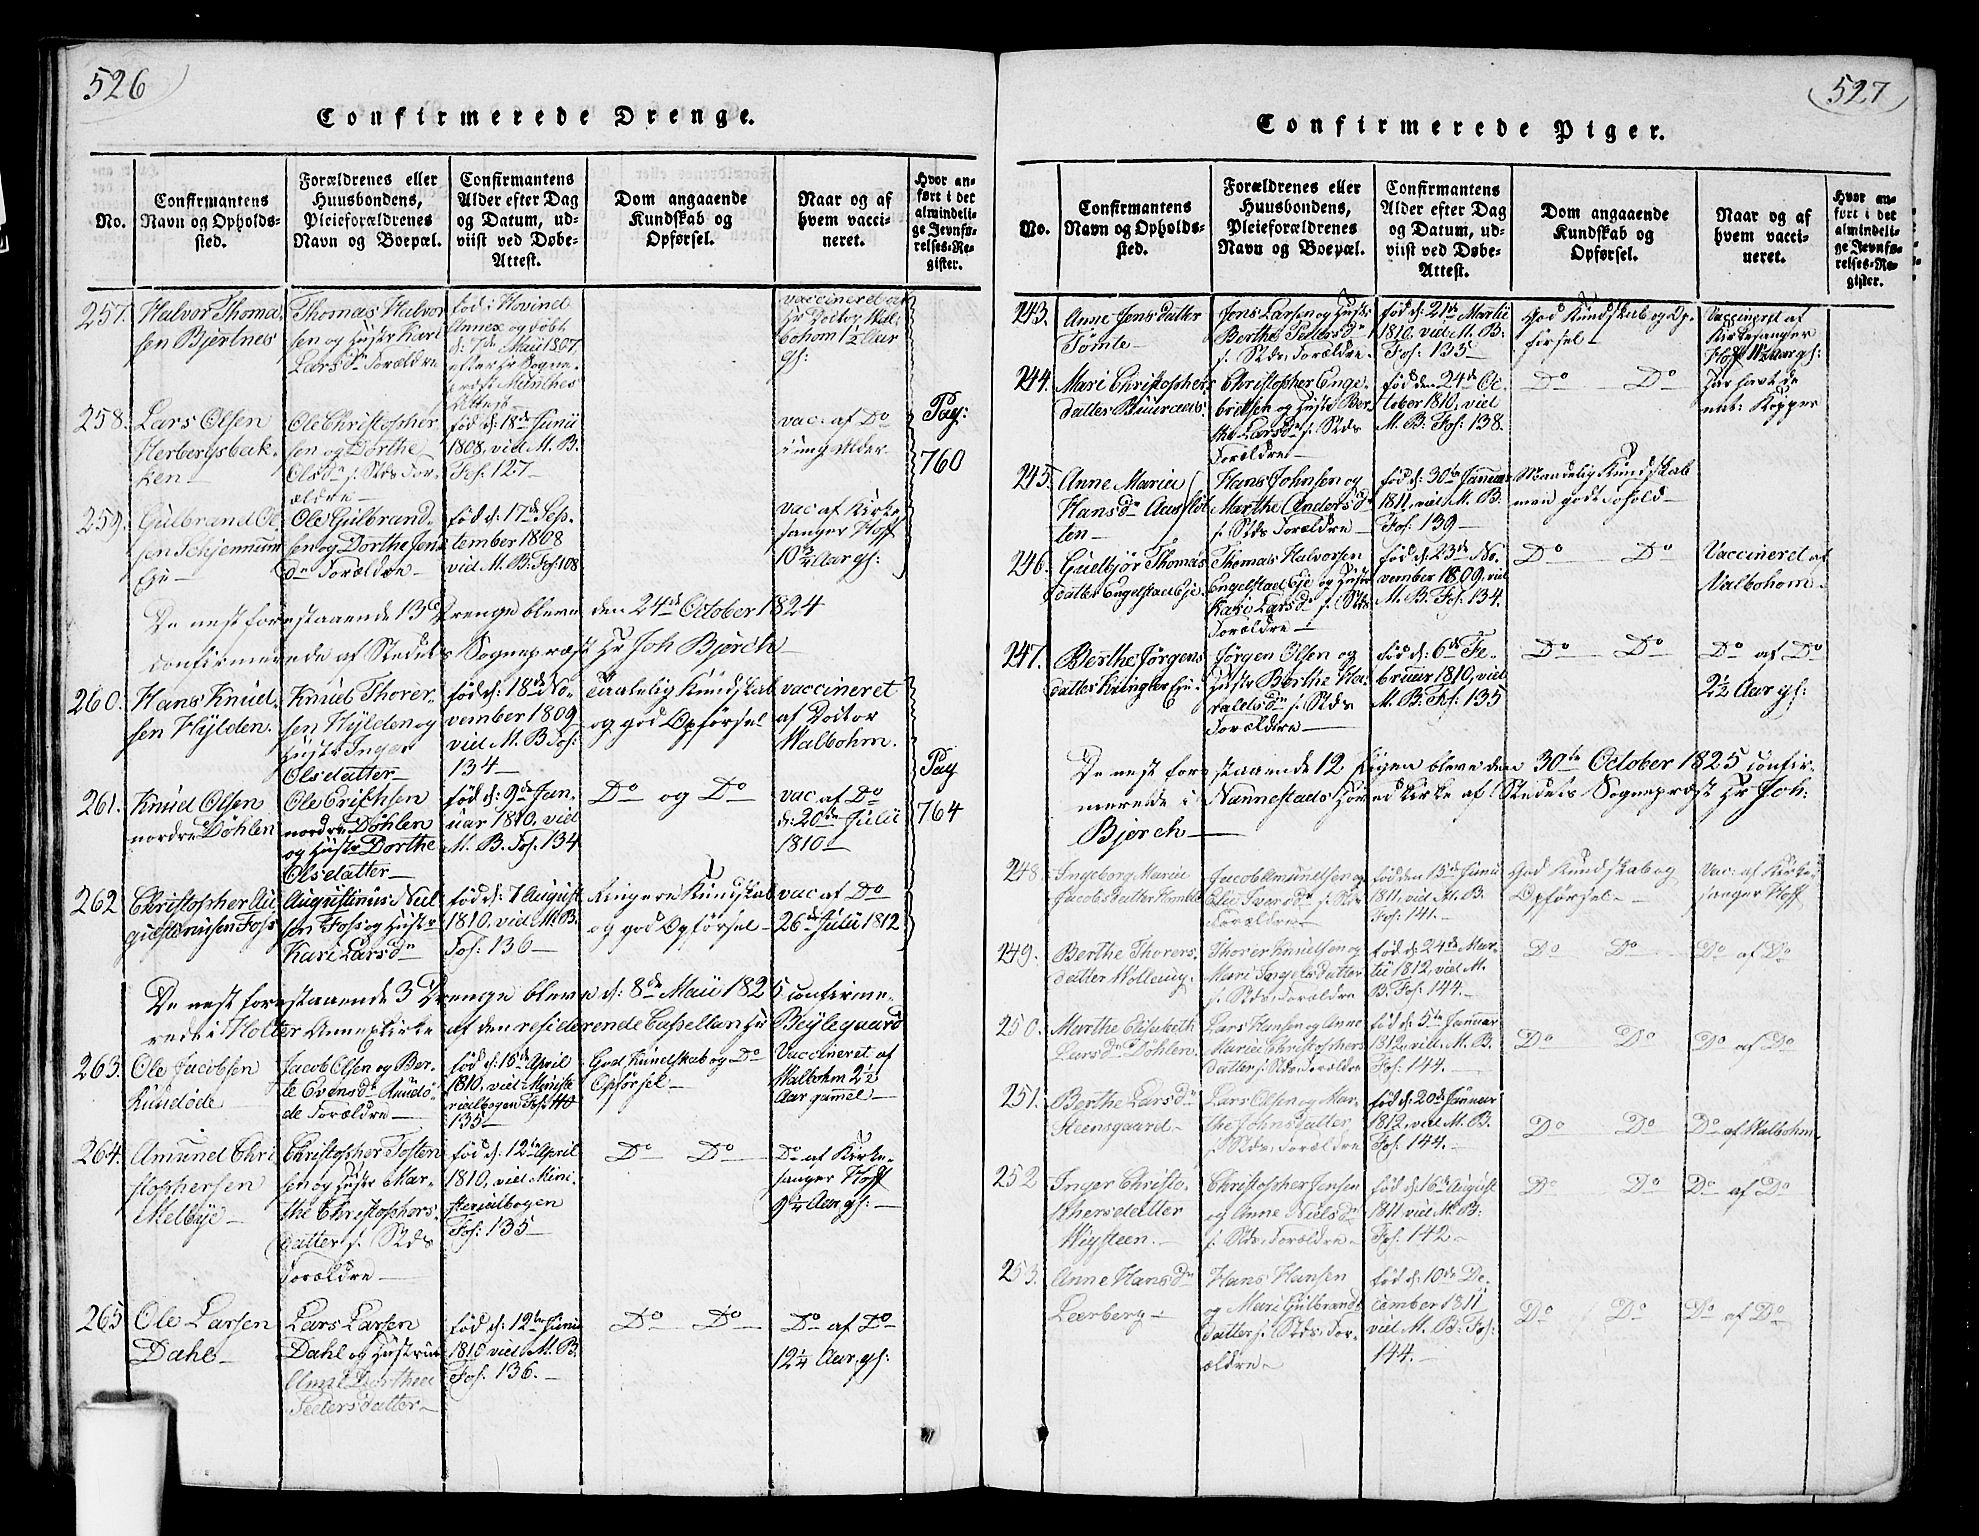 526
Confirmerede Drenge.
No.
Confirmantens
Navn og Opholds-
sted.
Forældrenes eller
Huusbondens,
Pleieforældrenes
Navn og Boepæl.
Confirmantens
Alder efter Dag
og Datum, ud-
viist ved Døbe-
Attest.
Dom angaaende
Kundskab og
Opførsel.
Naar og af
hvem vacci-
neret.
Hvor an-
ført i det
almindeli-
ge Jevnfø-
relses-Re-
gister.
257.
Halvor Thoma-
sen Bjertnes
Thomas Halvor
sen og Hustr Kari
Larsdr Forældre
fød i Hovind
Annex og døbt
d: 7de Maii 1807.
efter Hr Sogne-
Munthes
Attest
vaccineret af
Hr Doctor Wal-
bohm 1½ Aar
gl:
258.
Lars Olsen
Herbergsbak-
ken
Ole Christopher
sen og Dorthe
Olsdr s. Stds For-
ældre
fød d: 18de Junii
1808, vid M. B.
Fol: 127
vac: af Do
i ung Alder
Pag:
760
259.
Gulbrand Ol-
sen Schjennum
Eje
Ole Gulbrand-
sen og Dorthe Jens
dr Forældre
fød d: 17de Sep-
tember 1808
vid M. B: Fol: 108
vac af Kirke
sanger Hoff
10¾ Aar gl:
De nest forestaaende 13 Drenge bleve den 24de October 1824
confirmerede af Stedets Sognepræst Hr Joh Bjørch
260.
Hans Knud-
sen Hylden.
Knud Thorer-
sen Hylden og
Hustr Inger
Olsdatter
fød d: 18de No-
vember 1809
vid M. B Fol:
134
Taalelig Kundskab
og god Opførsel
vaccineret
af Doctor
Walbohm.
261.
Knud Olsen
nordre Døhlen
Ole Erichsen
nordre Døhlen
og Hustr Dorthe
Olsdatter
fød d: 9de Jan-
uar 1810. vid
M. B. Fol. 134
Do og Do
vac af Do
d: 20de Julii
1810
Pag
764
262
Christopher Au
gustinusen Foss
Augustinus Niel
sen Foss og Hustr
Kari Larsdr
fød d: 7 August
1810, vid M. B.
Fol: 136
Ringere Kundskab
og god Opførsel
vac af Do
26de Julii 1812
De nest forestaaende 3 Drenge bleve d: 8de Maii 1825 confirme-
rede i Holter Annexkirke af den residerende Capellan Hr Beylegaard
263.
Ole Jacobsen
Rundøde
Jacob Olsen og Ber-
te Evensdr Rundø-
de Forældre
fød d: 16de April
1810, vid Ministe
rialbogen Fol: 40
135
God Kundskab og Do
Opførsel
Vaccineret af
Walbohm 2½
Aar gammel
264.
Amund Chri
stophersen
Melbye
Christopher Tosten
sen og Hustr Mar-
the Christophers-
datter s. Stds
Forældre
fød d: 12te April
1810, vid Mini
sterialbogen
Fol: 135
Do Do
Do af Kirke-
sanger Hoff
9¼ Aar gl:
265
Ole Larsen
Dahl
Lars Larsen
Dahl og Hustrue
Anne Dorthea
Pedersdatter
fød d: 12te Junii
1810 vid M. B.
Fol. 136.
Do Do
Do af Do
12¼ Aar gl:
527
Confirmerede Piger.
No.
Confirmantens
Navn og Opholds-
sted.
Forældrenes eller
Huusbondens,
Pleieforældrenes
Navn og Boepæl.
Confirmantens
Alder efter Dag
og Datum, ud-
viist ved Døbe-
Attest.
Dom angaaende
Kundskab og
Opførsel.
Naar og af
hvem vacci-
neret.
Hvor an-
ført i det
almindeli-
ge Jevnfø-
relses-Re-
gister.
243.
Anne Jensdatter
Tømte
Jens Larsen og Hustr
Berthe Pedersdr
s. Stds: Forældre
fød d: 21de Martii
1810. vid M. B:
Fol: 135
God Kundskab og Op-
førsel
Vaccinerd af
Kirkesanger
Hoff 11½ Aar gl:
244.
Mari Christophers
datter Buuraas
Christopher Enge
britsen og Hustr Ber
the Larsdr s. Stds
Forældre
fød den 24de Oc
tober 1810, vid
M. B: Fol: 138.
Do Do
Har havt de
nat: Kopper
245.
Anne Maria
Hansdr
ten
Hans Johnsen og
Marthe Andersdr
s. Stds Forældre
fød d: 30te Januar
1811, vid M. B.
Fol: 139
Maadelig Kundskab
men godt Forhold
246.
Guelbjør Thomas
datter Engelstad Eje
Thomas Halvorsen
Engelstad Eje og Hustr
Kari Larsdr s. Stds
Forældre
fød d: 23de No-
vember 1809, vid
M. B. Fol. 134.
Do Do
Vaccinerd af
Walbohom.
247.
Berthe Jørgens
datter Kringler Eje
Jørgen Olsen og
Hustr Berthe Ha-
raldsdr s. Stds
Forældre
fød d: 6te Fe-
bruar 1810, vid
M. B. Fol. 135
Do Do
Do af Do
2½ Aar gl:
De nest forestaaende 12 Pigen bleve den 30te October 1825 confir-
merede i Nannestads Hoved Kirke af Stedets Sognepræst Hr Joh:
Bjørch
248.
Ingeborg Maria
Jacobsdatter Homble
Jacob Amundsen og
Elie Iversdr s. Stds
Forældre
fød den 15de Junii
1811, vid M. B.
Fol: 141.
God Kundskab og
Opførsel
Vac: af Kirke-
sanger Hoff
249.
Berthe Thorers
datter Holleug.
Thorer Knudsen og
Mari Targetsdatter
s. Stds: Forældre
fød d: 24de Mar-
tii 1812, vid M.
B. Fol: 144.
Do Do
Do af Do
250.
Marthe Elisabeth
Larsdr Døhlen
Lars Hansen og Anne
Maria Christophers
datter s. Stds Forældre
fød d: 5te Januar
1812, vid M. B.
Fol: 144.
Do Do
Do af Do
251.
Berthe Larsdr
Steensgaard
Lars Olsen og Mar-
the Johnsdatter
s. Stds. Forældre
fød d: 20de Januar
1812, vid M. B.
Fol: 144.
Do Do
Do af Walbohm
252
Inger Christo-
phersdatter
Wigsteen.
Christopher Jensen
og Anne Nielsdr
s. Stds. Forældre
fød d: 16de August
1811 vid M. B:
Fol: 142
Do Do
Do af Do
253.
Anne Hansdr
Leerberg
Hans Hansen
og Mari Gulbrands
datter s. Stds: For-
ældre
fød d: 10de De-
cember 1811
vid M. B: Fol:
144.
Do Do
Do af Do